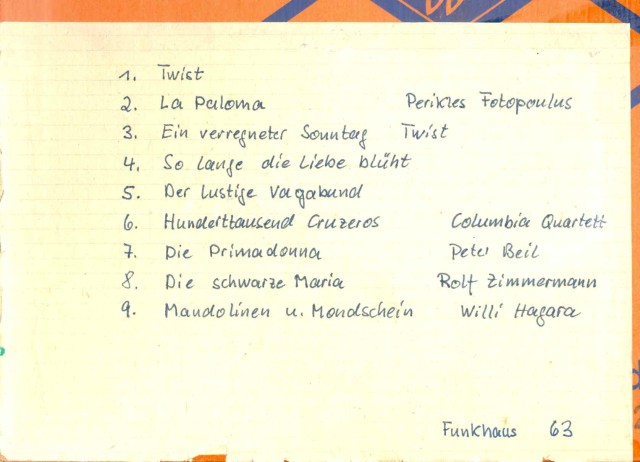 1. Twist
2. La Paloma Perikles Fotopoulus
3. Ein verregneter Sonntag Twist
4. So lange die Liebe blüht
5. Der lustige Vagabund
6. Hunderttausend Cruzeros Columbia Quartett
7. Die Primadonna Peter Beil
8. Die schwarze Maria Rolf Zimmermann
9. Mandolinen u. Mondschein Willi Hagara
Funkhaus 63